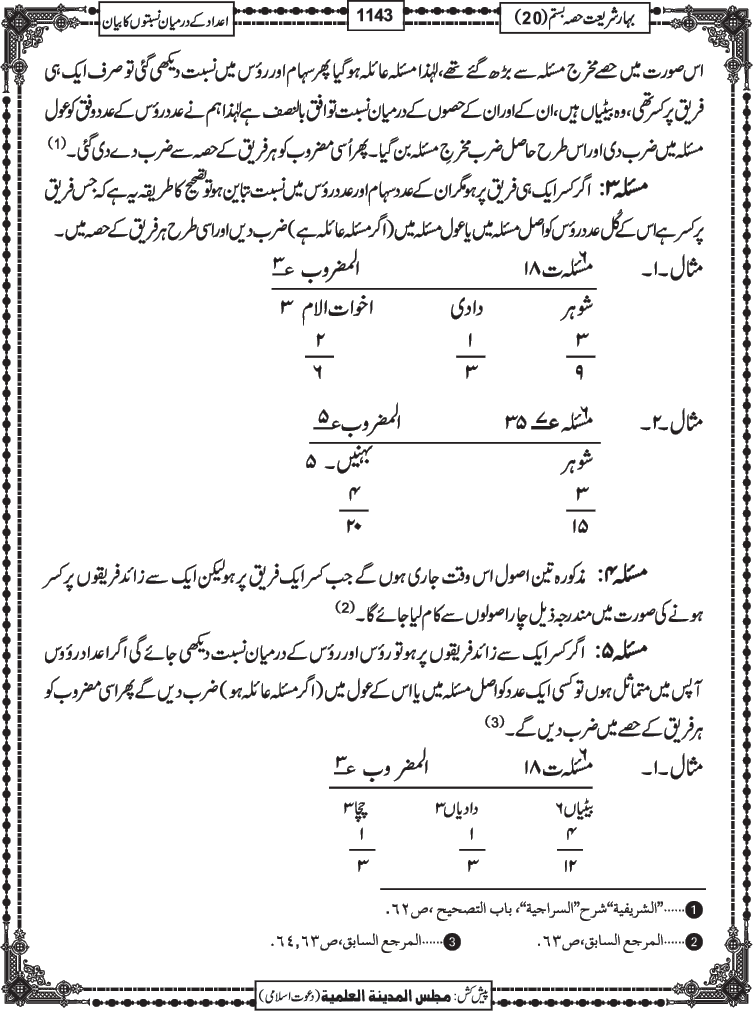 بہارِ شریعت حصہ بستم (20)
1143
اعداد کے درمیان نسبتوں کا بیان
اس صورت میں حصے مخرج مسئلہ سے بڑھ گئے تھے، لہٰذا مسئلہ عائلہ ہو گیا پھر سہام اور رؤس میں نسبت دیکھی گئی تو صرف ایک ہی
فریق پر کسر تھی، وہ بیٹیاں ہیں، ان کے اور ان کے حصوں کے درمیان نسبت توافق بالنصف ہے لہٰذا ہم نے عدد رؤس کے عدد وفق کو عول
مسئلہ میں ضرب دی اور اس طرح حاصل ضرب مخرج مسئلہ بن گیا۔ پھر اُسی مضروب کو ہر فریق کے حصہ سے ضرب دے دی گئی۔ (1)
مسئلہ ۳: اگر کسر ایک ہی فریق پر ہو مگر ان کے عدد سہام اور عدد رؤس میں نسبت تباین ہو تو تصحیح کا طریقہ یہ ہے کہ جس فریق
پر کسر ہے اس کے کُل عدد رؤس کو اصل مسئلہ میں یا عول مسئلہ میں (اگر مسئلہ عائلہ ہے) ضرب دیں اور اسی طرح ہر فریق کے حصہ میں۔
مثال ۔۱۔ مسئلہ ۶ ت ۱۸ المضروب عـ۳
شوہر دادی اخوات الام ۳
۳ ۱ ۲
۹ ۳ ۶
مثال ۔۲۔ مسئلہ ۶ عـ۷ ۳۵ المضروب عـ۵
شوہر بہنیں۔ ۵
۳ ۴
۱۵ ۲۰
مسئلہ ۴: مذکورہ تین اصول اس وقت جاری ہوں گے جب کسر ایک فریق پر ہو لیکن ایک سے زائد فریقوں پر کسر
ہونے کی صورت میں مندرجہ ذیل چار اصولوں سے کام لیا جائے گا۔ (2)
مسئلہ ۵: اگر کسر ایک سے زائد فریقوں پر ہو تو رؤس اور رؤس کے درمیان نسبت دیکھی جائے گی اگر اعداد رؤوس
آپس میں متماثل ہوں تو کسی ایک عدد کو اصل مسئلہ میں یا اس کے عول میں (اگر مسئلہ عائلہ ہو) ضرب دیں گے پھر اسی مضروب کو
ہر فریق کے حصے میں ضرب دیں گے۔ (3)
مثال ۔۱۔ مسئلہ ۶ ت ۱۸ المضروب عـ۳
بیٹیاں ۶ دادیاں ۳ چچا ۳
۴ ۱ ۱
۱۲ ۳ ۳
1 ......"الشریفیۃ" شرح "السراجیۃ"، باب التصحیح، ص۶۲.
2 ......المرجع السابق، ص۶۳.
3 ......المرجع السابق، ص۶۳,۶۴.
پیش کش: مجلس المدینۃ العلمیۃ (دعوت اسلامی)